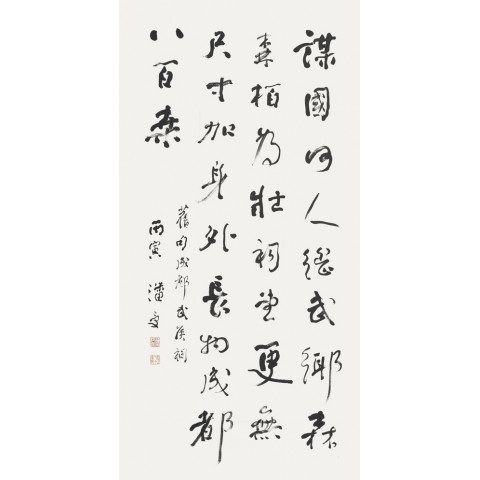 謀國何人繼武鄉森
森柏為壯祠堂更無
尺寸加身外長物成都
八百桑
舊句成都武侯祠
丙寅 潘受